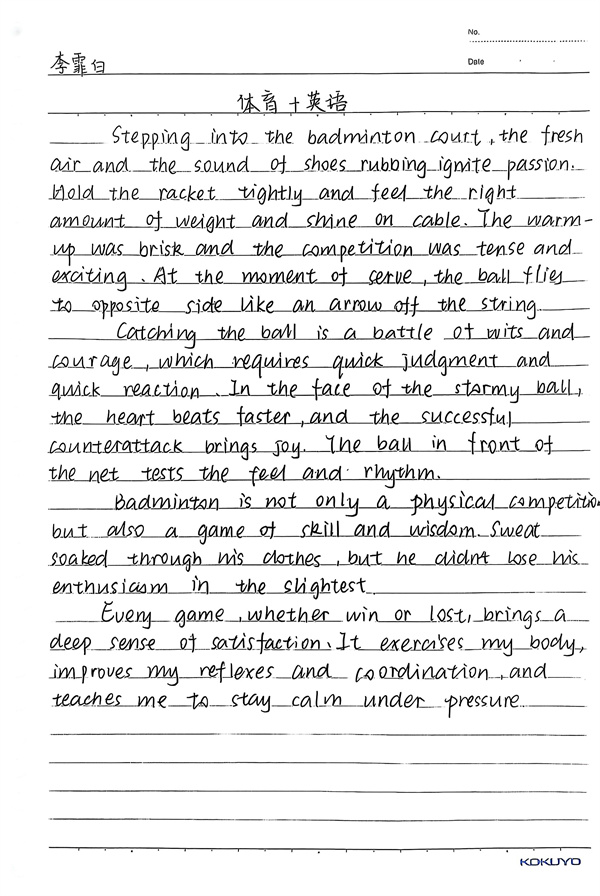 No.
Date
李霏白
体育+英语
Stepping into the badminton court, the fresh
air and the sound of shoes rubbing ignite passion.
Hold the racket tightly and feel the right
amount of weight and shine on cable. The warm-
up was brisk and the competition was tense and
exciting. At the moment of serve, the ball flies
to opposite side like an arrow off the string
Catching the ball is a battle of wits and
courage, which requires quick judgment and
quick reaction. In the face of the stormy ball,
the heart beats faster, and the successful
counterattack brings joy. The ball in front of
the net tests the feel and rhythm.
Badminton is not only a physical competitio
but also a game of skill and wisdom. Sweat
soaked through his clothes, but he didn't lose his
enthusiasm in the slightest
Every game, whether win or lost, brings a
deep sense of satisfaction. It exercises my body,
improves my reflexes and coordination, and
teaches me to stay calm under pressure
KOKUYO